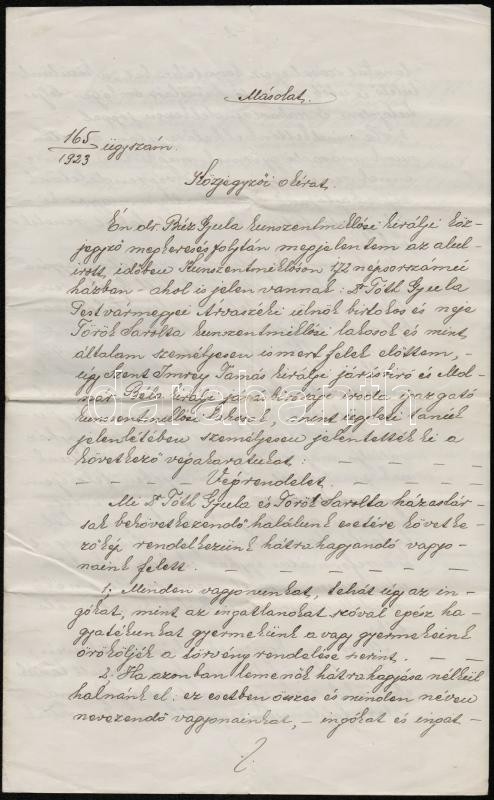 Másolat.
165/1923 ügyszám.
Közjegyzői okirat.
Én dr Béz Gyula kunszentmiklósi királyi köz-
jegyző megkeresés folytán megjelentem az alul-
irott időben Kunszentmiklóson 172 népsorszámú
házban - ahol is jelen vannak: Dr Tóth Gyula
Pestvármegyei Árvaszéki ülnök birtokos és neje
Török Sarolta kunszentmiklósi lakosok és mint
általam személyesen ismert felek előttem, -
úgy Szent Imrey Tamás királyi járásbiró és Mol-
nár Béla királyi járásbirósági iroda igazgató
kunszentmiklósi lakosok, mint ügyleti tanuk
jelenlétében személyesen jelentették ki a
következő végakaratukat: - - - -
- - - - - Végrendelet. - - - - -
Mi Dr Tóth Gyula és Török Sarolta házastár-
sak bekövetkezendő halálunk esetére követke-
zőkép rendelkezünk hátrahagyandó vagyo-
naink felett. - - - - - - -
1, Minden vagyonunkat, tehát úgy az in-
gókat, mint az ingatlanokat szóval egész ha-
gyatékunkat gyermekünk avagy gyermekeink
örököljék a törvény rendelése szerint. - - -
2. Ha azonban lemenők hátrahagyása nélkül
halnánk el: ez esetben összes és minden néven
nevezendő vagyonainkat, - ingókat és ingat-
darabanth